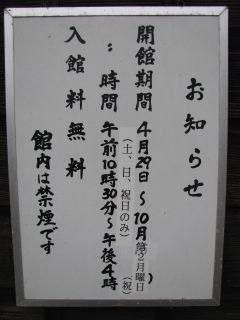 お知らせ
開館期間 4月29日～10月第2月曜日(祝)
(土、日、祝日のみ)
:時間 午前10時30分～午後4時
入館料 無料
館内は禁煙です